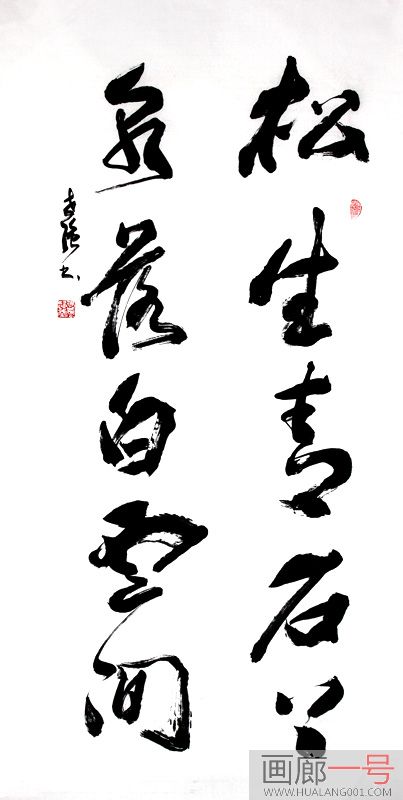 松生青石上
泉落白雲间
画廊一号
WWW.HUALANG001.COM